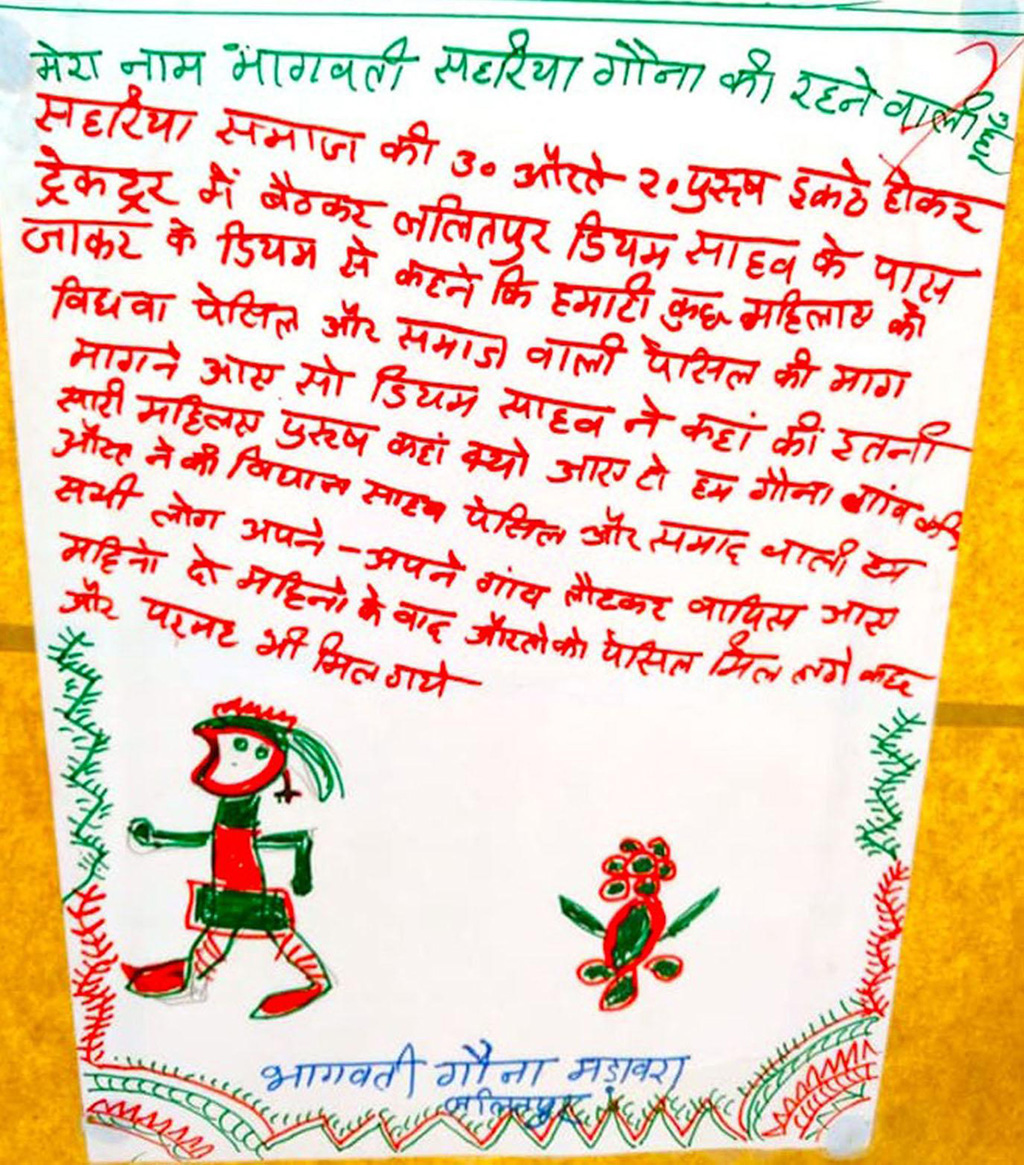 मेरा नाम भागवती सहरिया गौना की रहने वाली हूँ
सहरिया समाज की ३० औरते २० पुरूष इकठे होकर
ट्रेकट्रर में बैठकर ललितपुर डियम साहव के पास
जाकर के डियम से कहने कि हमारी कुछ महिलाए को
विधवा पेंसिल और समाज वाली पेंसिल की माग
मागने आए सो डियम साहव ने कहां की इतनी
सारी महिलाए पुरूष कहां क्यो आए हम गौना गांव की
औरत ने की साहव पेंसिल और समाद वाली हम
सभी लोग अपने - अपने गांव लौटकर वापिस आए
महिनो दो महिनो के वाद औरतो को पेंसिल मिल लगे
और भी मिल गये
भागवती गौना मडावरा
ललितपुर